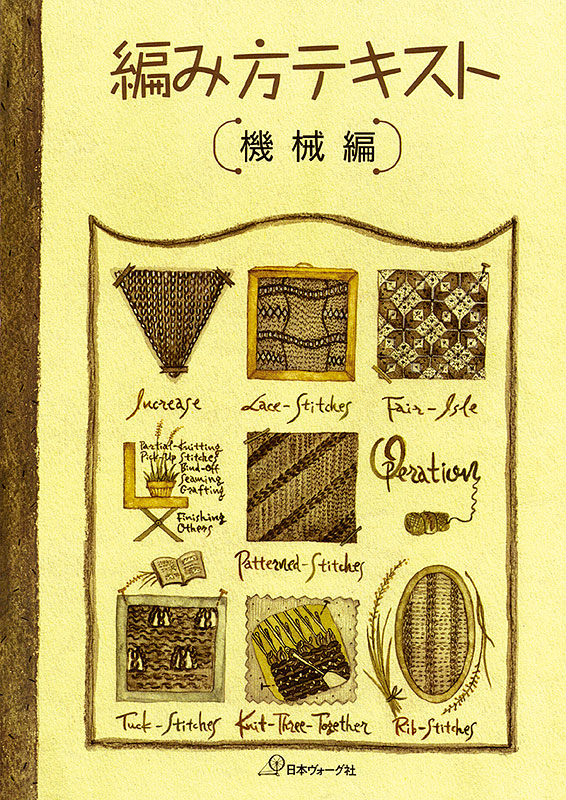 編み方テキスト
機械編
Increase
Lace-Stitches
Fair-Isle
Partial-Knitting
Pick-Up Stitches
Bind-Off
Seaming
Grafting
Finishing
Others
Operation
Patterned-Stitches
Tuck-Stitches
Knit-Three-Together
Rib-Stitches
日本ヴォーグ社